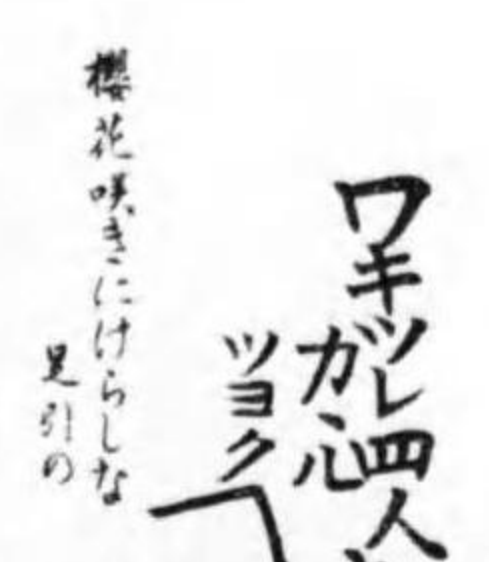 ワキツレ四人
ガ心
ツヨク
櫻花咲きにけらしな
足引の